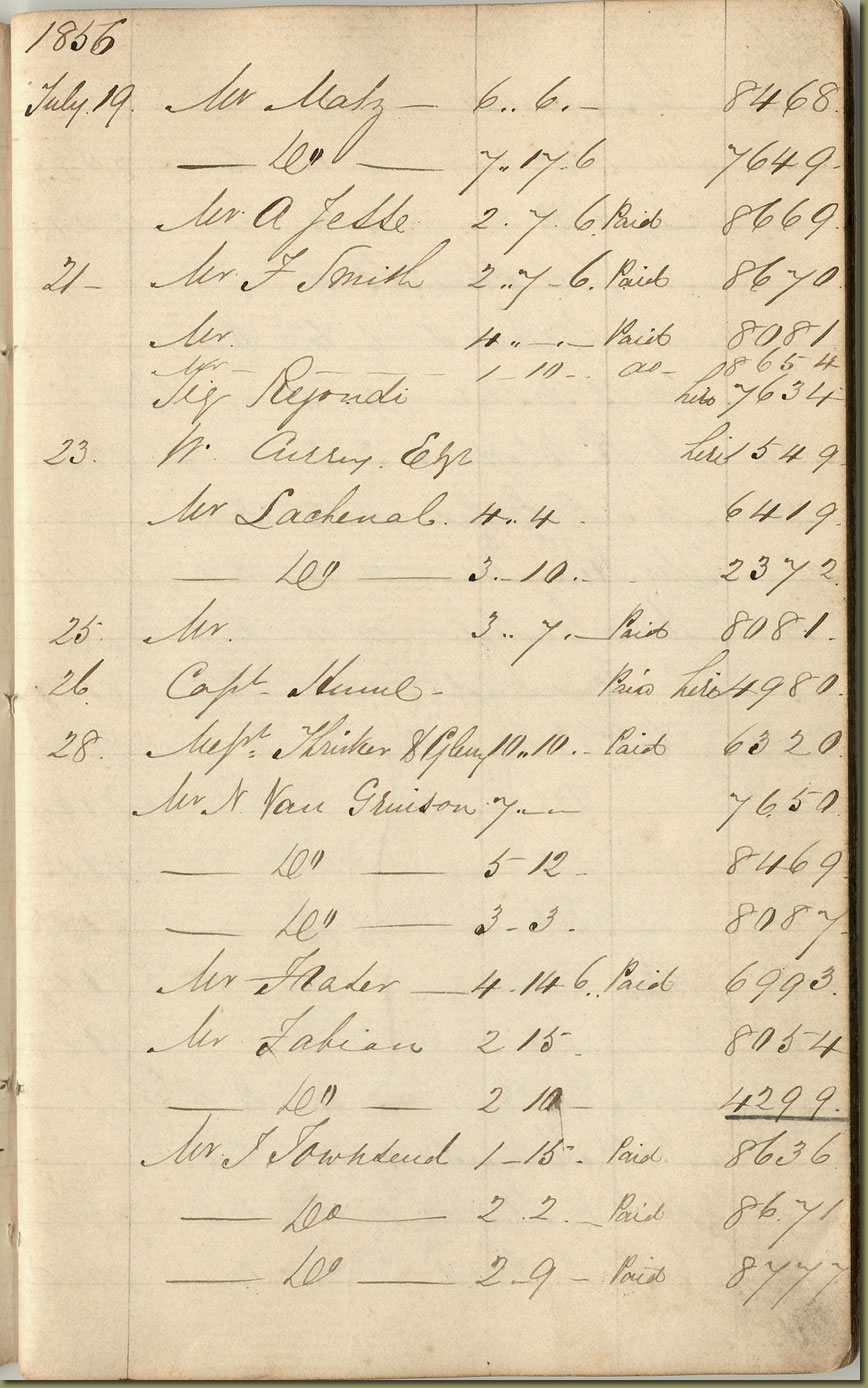 1856
July. 19. Mr Matz — 6.. 6. – 8468.
— Do" — 7.. 17. 6 7649.
Mr A Jesse 2. 7. 6. Paid 8669.
21 – Mr F Smith 2.. 7 – 6. Paid 8670
Mr. 4 .. –. – Paid 8081
Mr – 1 – 10 –. Do – 8654
Sig Regondi hire 7634
23. W. Esqr hire 1549
Mr Lachenal. 4.. 4 . 6419.
— Do" — 3. – 10. – 2372.
25. Mr. 3.. 7. – Paid 8081.
26 Capt – Paid hire 4980.
28. Messrs. & 10.. 10. – Paid 6320
Mr N Van 7. – – 7650
— Do" — 5 12 – 8469
— Do" — 3 – 3. 8087
Mr — 4 – 14 6. Paid 6993.
Mr Fabian 2 15 – 8054
— Do" — 2 10 – 4299.
Mr J Townsend 1 – 15 – . Paid 8636
— Do — 2 . 2. – Paid 8671
— Do — 2 – 9 – Paid 8777